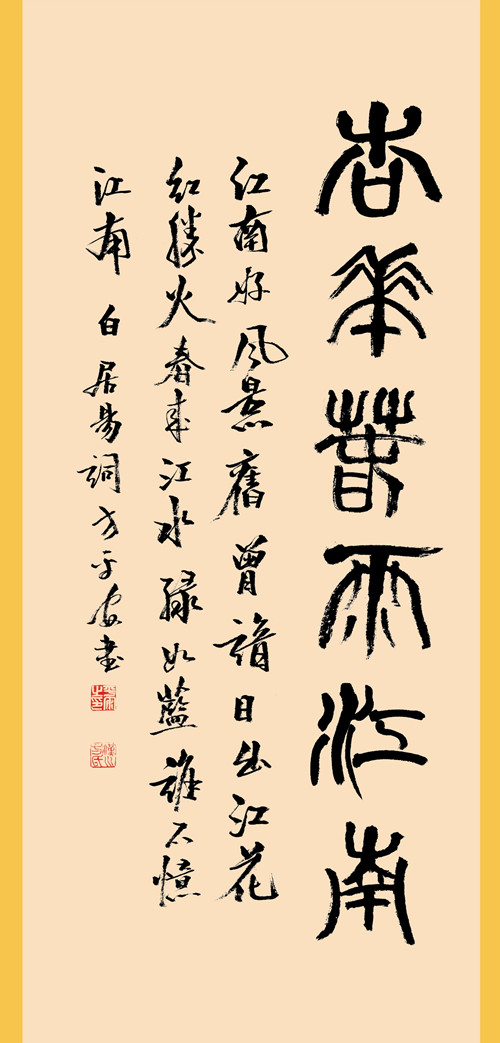 杏華春雨江南
江南好風景舊曾諳日出江花
紅勝火春來江水綠如藍誰不憶
江南 白居易詞 書